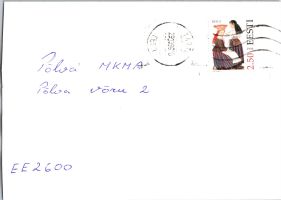 2.50 EESTI
Põlva MKMA
Põlva Võru 2
EE2600